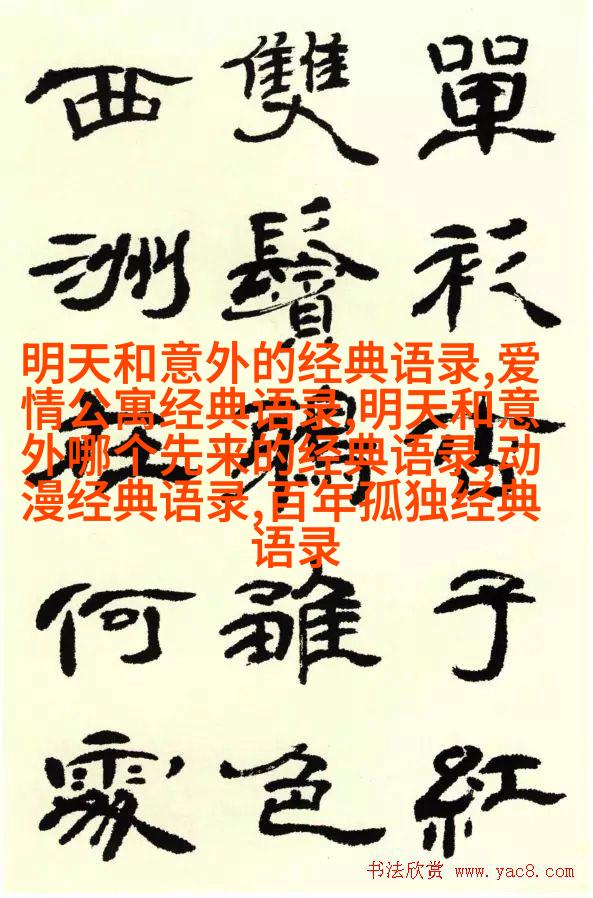 單衫杏子紅
雙鬢鴉雛色
西洲在何處
明天和意外的经典语录,爱
情公寓经典语录,明天和意
外哪个先来的经典语录,动
漫经典语录,百年孤独经典
语录
书法欣赏 www.yac8.com